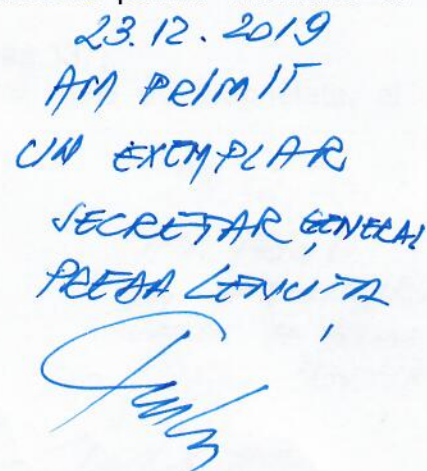 23.12.2019
AM PRIMIT
UN EXEMPLAR
SECRETAR GENERAL
PREDA LENUȚA